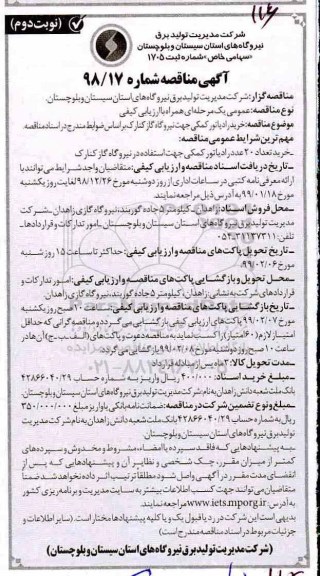 ۱۱۶
(نوبت دوم)
شرکت مدیریت تولید برق
نیروگاه‌های استان سیستان و بلوچستان
«سهامی خاص» شماره ثبت ۱۷۰۵
آگهی مناقصه شماره ۹۸/۱۷
مناقصه گزار: شرکت مدیریت تولید برق نیروگاه های استان سیستان و بلوچستان
نوع مناقصه: عمومی یک مرحله ای همراه با ارزیابی کیفی
موضوع مناقصه: خرید رادیاتور کمکی جهت نیروگاه گاز کنارک بر اساس ضوابط مندرج در اسناد مناقصه.
مهم ترین شرایط عمومی مناقصه:
_خرید تعداد ۲۰ عدد رادیاتور کمکی جهت استفاده در نیروگاه گاز کنارک
_تاریخ دریافت اسناد مناقصه و ارزیابی کیفی: متقاضیان واجد شرایط می توانند با
ارائه معرفی نامه کتبی در ساعات اداری از روز دوشنبه مورخ ۹۸/۱۲/۲۶ لغایت روز یکشنبه
مورخ ۹۹/۰۱/۱۸ به آدرس ذیل مراجعه نمایند.
_محل فروش اسناد: زاهدان_ کیلومتر ۵ جاده گوربند، نیروگاه گازی زاهدان_شرکت
مدیریت تولید برق نیروگاه های استان سیستان و بلوچستان_امور تدارکات و قراردادها_
تلفن: ۳۱۱۳۷۳۱۱-۰۵۴
_تاریخ تحویل پاکت های مناقصه و ارزیابی کیفی: حداکثر تا ساعت ۱۵ روز شنبه
مورخ ۹۹/۰۲/۰۶
_محل تحویل و بازگشایی پاکت های مناقصه و ارزیابی کیفی: امور تدارکات و
قراردادهای شرکت به نشانی زاهدان، کیلومتر ۵ جاده گوربند، نیروگاه گازی زاهدان
_تاریخ بازگشایی پاکت های مناقصه و ارزیابی کیفی: ساعت ۱۰ صبح روز یکشنبه
مورخ ۹۹/۰۲/۰۷ پاکت های ارزیابی کیفی بازگشایی می گردد و مناقصه گرانی که حداقل
امتیاز لازم (۶۰ امتیاز) را کسب نمایند به مناقصه دعوت و پاکت های (الف_ب_ج) آن ها در
ساعت ۱۰ صبح روز دوشنبه مورخ ۹۹/۰۲/۰۸ بازگشایی می گردد.
_مدت تحویل کالا: ۳ ماه پس از مبادله قرارداد
_مبلغ خرید اسناد: ۴۰۰/۰۰۰ ریال واریز به شماره حساب ۴۲۸۶۶۰۴۰/۲۹
بانک ملت شعبه دانش زاهدان به نام شرکت مدیریت تولید برق نیروگاه های استان سیستان و بلوچستان.
_مبلغ و نوع تضمین شرکت در مناقصه: ضمانت نامه بانکی یا واریز مبلغ ۳۵۰/۰۰۰/۰۰۰
ریال به شماره حساب ۴۲۸۶۶۰۴۰/۲۹ بانک ملت شعبه دانش زاهدان به نام شرکت مدیریت
تولید برق نیروگاه های استان سیستان و بلوچستان
_به پیشنهادهایی که فاقد سپرده یا امضاء، مشروط و مخدوش و سپرده های
کمتر از میزان مقرر، چک شخصی و نظایر آن و پیشنهادهایی که پس از
انقضای مدت مقرر در آگهی واصل شود مطلقاً ترتیب اثر داده نخواهد شد ضمناً
متقاضیان می توانند جهت کسب اطلاعات بیشتر به سایت مدیریت و برنامه ریزی کشور
به آدرس: www.iets.mporg.ir مراجعه نمایند.
بدیهی است این شرکت در رد یا قبول یک و یا کلیه پیشنهادها مختار است. (سایر اطلاعات و
جزئیات مربوط در اسناد مناقصه مندرج است)
(شرکت مدیریت تولید برق نیروگاه های استان سیستان و بلوچستان)